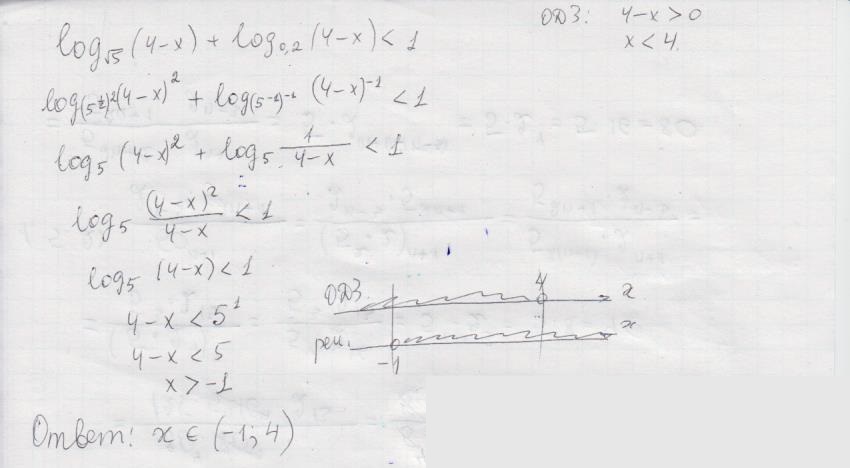 log_{√5} (4-x) + log_{0,2} (4-x) < 1
ОДЗ: 4-x > 0
x < 4.
log_{(5^{1/2})^2} (4-x)^2 + log_{(5^{-1})^{-1}} (4-x)^{-1} < 1
log_5 (4-x)^2 + log_5 \frac{1}{4-x} < 1
log_5 \frac{(4-x)^2}{4-x} < 1
log_5 (4-x) < 1
4-x < 5^1
4-x < 5
x > -1
ОДЗ. 4 x
реш. -1 x
Ответ: x ∈ (-1; 4)